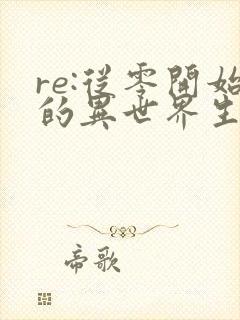 re:從零開始
的異世界生
帝歌